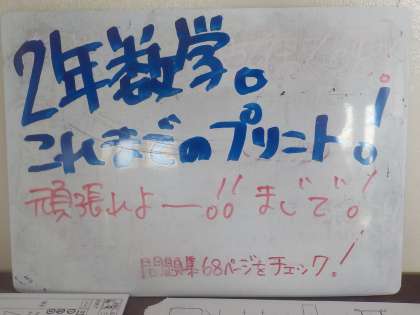 2年数学。
これまでのプリント。!
頑張れよー。!! まじで。!
問題集68ページをチェック!